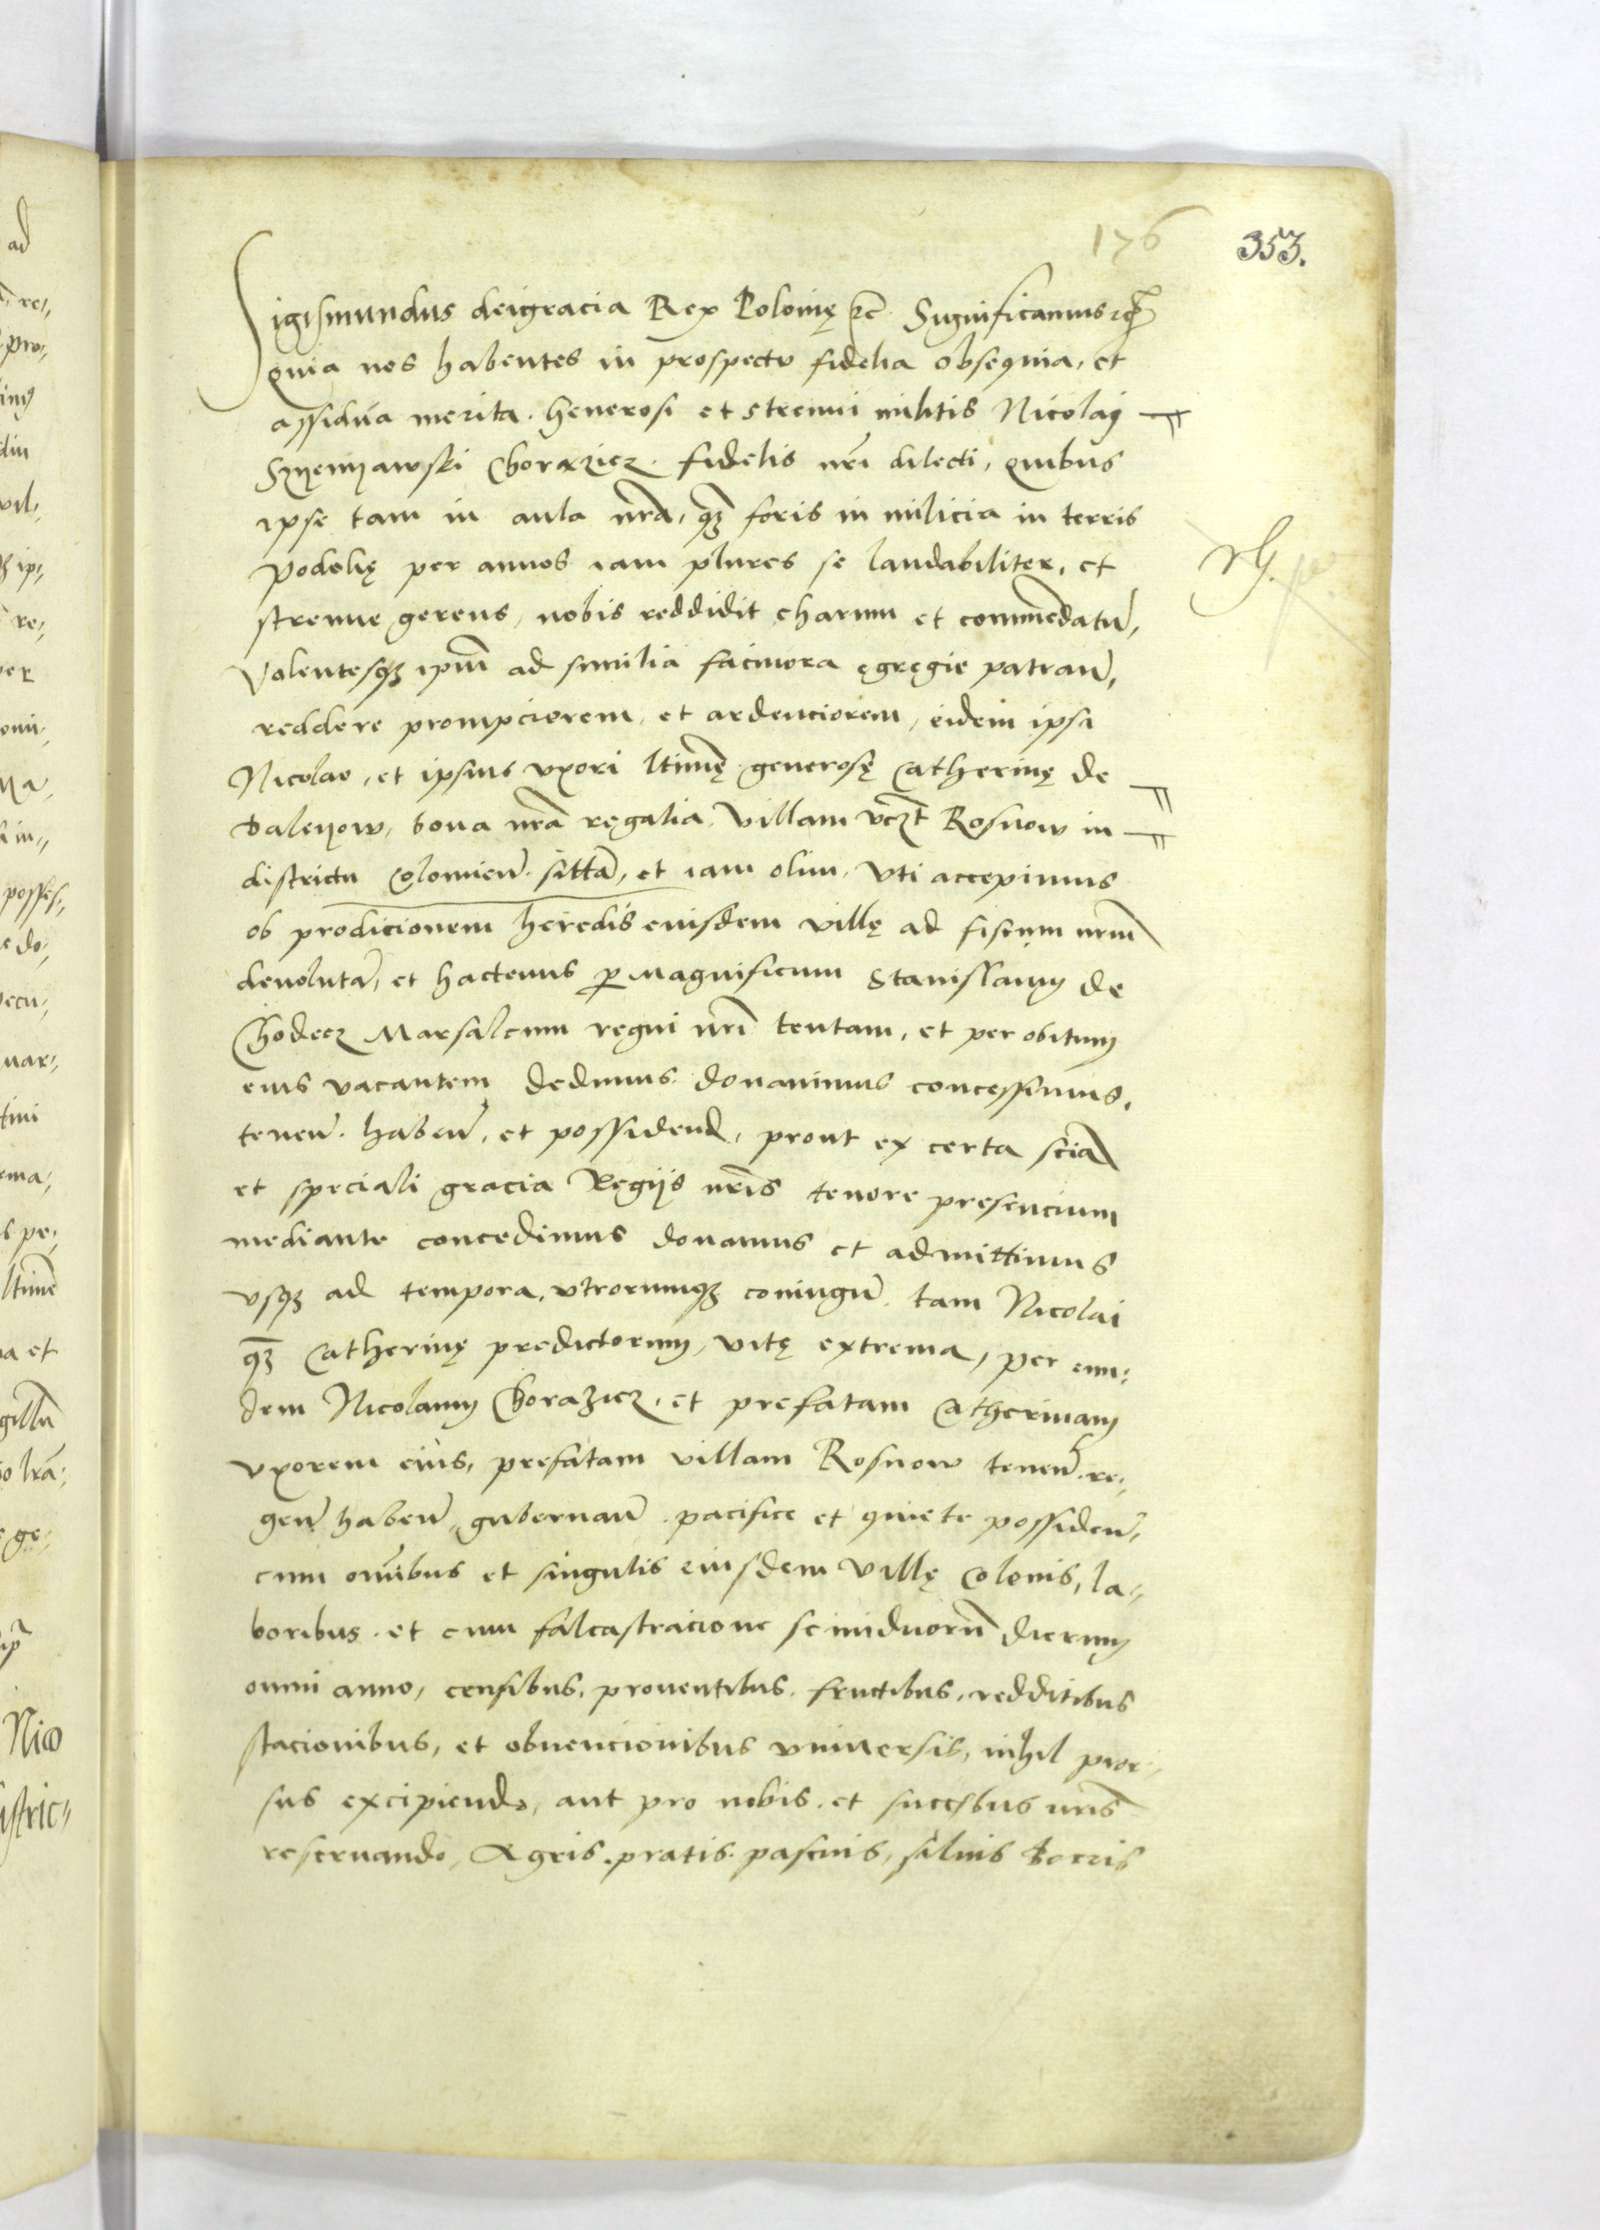 176 353.
Sigismundus deigracia Rex Polonię etc Significamus etc
quia nos habentes in prospectu fidelia obsequia, et
assidua merita generosi et strenui militis Nicolaÿ
Szyenyawski Chorazicz fidelis nrī dilecti, quibus
ipse tam in aula nrā, qȝ foris in milicia in terris
podolię per annos iam plures se laudabiliter, et
strenue gerens, nobis reddidit charum et commēdatū,
Volentesqȝ ipm̄ ad similia facinora ęgręgie patran̄,
reddere prompciorem, et ardenciorem, eidem ipsi
Nicolao, et ipsius vxori ltimę generosę Catherinę de
Daleyow, bona nrā regalia Villam vczt Rosnow in
districtu Colomien̄ sittā, et iam olim, vti accepimus
ob prodicionem heredis eiusdem villę ad fiscum nrm̄
deuolutā, et hactenus p magnificum Stanislaum de
Chodecz Marsalcum regni nrī tentam, et per obitum
eius vacantem dedimus donauimus concessimus,
tenen̄ haben̄, et possidend, prout ex certa sciā
et speciali gracia Regijs nrīs tenore presencium
mediante concedimus donamus et admittimus
vsqȝ ad tempora, vtrorumqȝ coniugū tam Nicolai
qȝ Catherinę predictorum, vitę extrema, per eun-
dem Nicolaum Chorazicz, et prefatam Catherinam
vxorem eius, prefatam villam Rosnow tenen̄ re-
gen̄ haben̄ gubernan̄ pacifice et quiete possiden̄,
cum omībus et singulis eiusdem Villę Colonis, la-
boribus et cum falcastracione se induorū dierum
omni anno, censibus, prouentibus fructibus, redditibus
stacionibus, et obuencionibus vniuersis, nihil pror-
sus excipiendo, aut pro nobis et succsbus nrīs
reseruando, Agris pratis pascuis, siluis borris